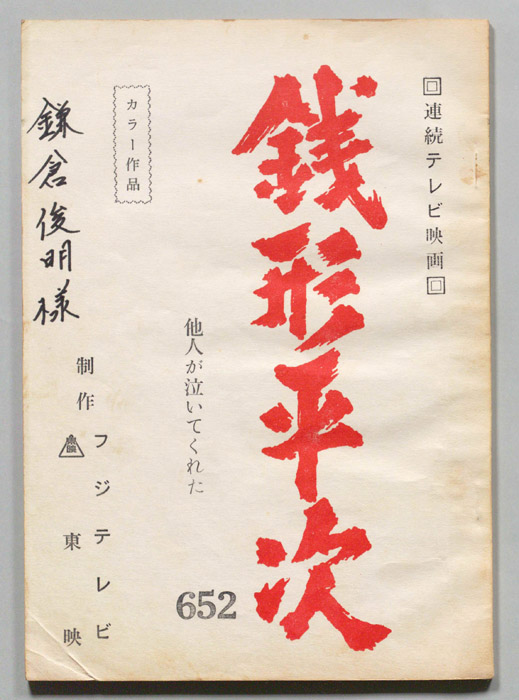 回連続テレビ映画回
銭形平次
他人が泣いてくれた
652
カラー作品
制作
フジテレビ
東映
東映
鎌倉俊明様